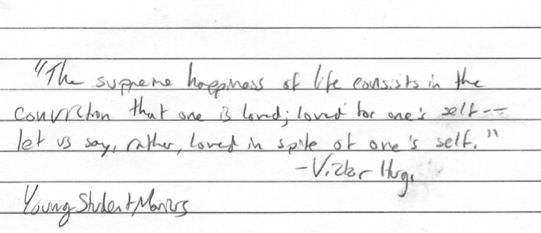 "The supreme happiness of life consists in the
conviction that one is loved; loved for one's self --
let us say, rather, loved in spite of one's self."
- Victor Hugo
YoungStudentMarius